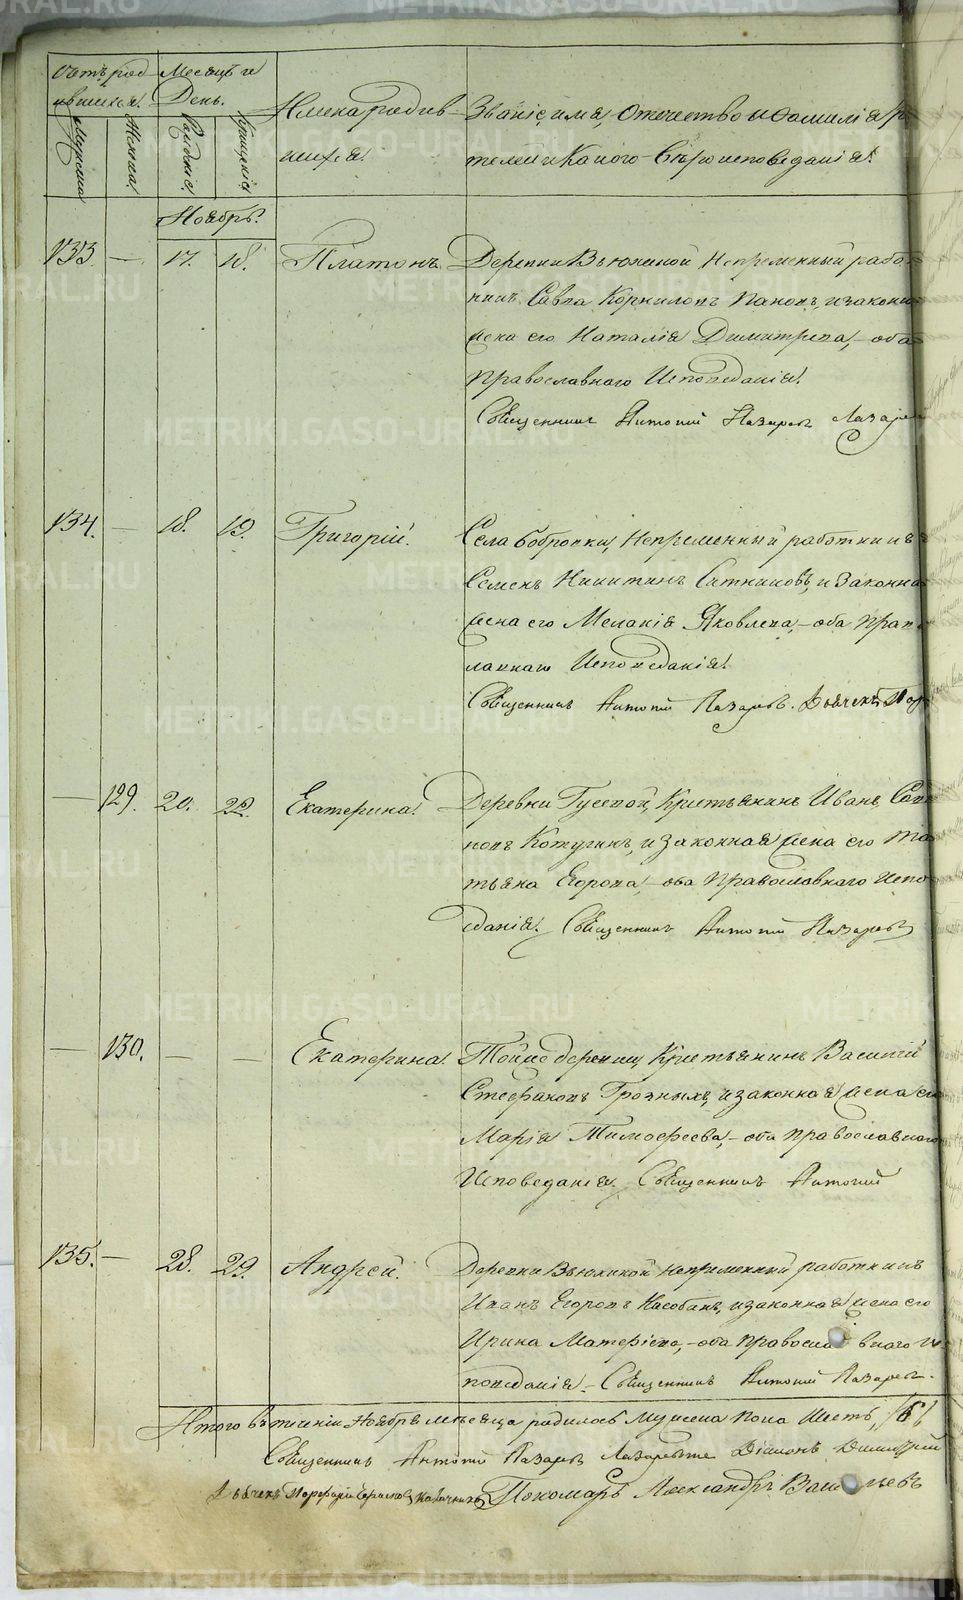 Счетъ род
ившихся.
Месяцъ и
День.
Мужеска
Женска
Рожденiе
Крещенiе
Имена родив
шихся.
Званiе, имя, Отечество и Фамилiя ро
телей и Какого Вѣроисповеданiя.
Ноябрь.
133. — 17. 18. Платонъ. Деревни Вьюхиной Непременный работ
никъ Савва Корниловъ Пановъ, и законн
жена его Наталiя Димитрева, — оба
православнаго Исповеданiя.
Священникъ Антонiй Лазаревъ Лазаре
134. — 18. 19. Григорiй. Села Бобровки, Непременный работникъ
Семенъ Никитинъ Ситниковъ, и законна
жена его Меланiя Яковлева, — оба прав
лавнаго Исповеданiя.
Священникъ Антонiй Лазаревъ. Дьячекъ Пор
— 129. 20. 22. Екатерина. Деревни Гусевой, Крестьянинъ Иванъ Сав
новъ Кожугинъ, и законная жена его Та
тьяна Егорова, — оба православнаго Испо
данiя. Священникъ Антонiй Лазаревъ
— 130. — — Екатерина. Тойже деревни, Крестьянинъ Василiй
Стефановъ Грозныхъ, и законная жена ег
Марiя Тимофеева, — оба православнаго
Исповеданiя. Священникъ Антонiй
135. — 28. 29. Андрей. Деревни Вьюхиной непременный работникъ
Иванъ Егоровъ, и законная жена его
Ирина — оба православнаго и
поведанiя. Священникъ Антонiй Лазаревъ.
Итого въ теченiи Ноября месяца родилось мужеска пола Шесть, /6/
Священникъ Антонiй Лазаревъ Дiаконъ Димитрiй
Дьячекъ Порфирiй Пономарь Александръ Васильевъ
METRIKI.GASO-URAL.RU